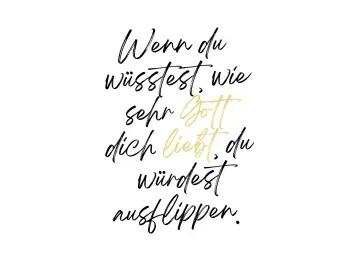 Wenn du
wüsstest, wie
sehr Gott
dich liebt, du
würdest
ausflippen.